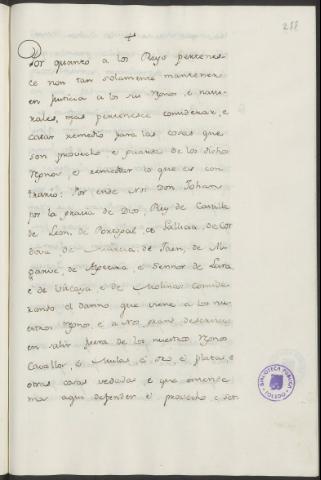 288
+
Por quanto a los Reys pertenes-
ce non tan solamente mantener
en justicia a los sus Regnos, e natu-
rales, mas pertenesce considerar, e
catar remedio para las cosas que
son provecho, e guarda de los dichos
Regnos, e remediar lo que es con-
trario: Por ende Nos Don Johan
por la gracia de Dios, Rey de Castilla
de Leon, de Portogal, de Gallicia, de Cor-
dova, de Murcia, de Jaen, de Al-
garve, de Algecira, e Sennor de Lara,
e de Vizcaya, e de Molina: conside-
rando el danno que viene a los nu-
estros Regnos, e a Nos grand deservicio
en salir fuera de los nuestros Regnos
Cavallos, e Mulas, e oro, e plata, e
otras cosas vedadas, e que
aqui defender el provecho, e
BIBLIOTECA PUBLICA
TOLEDO